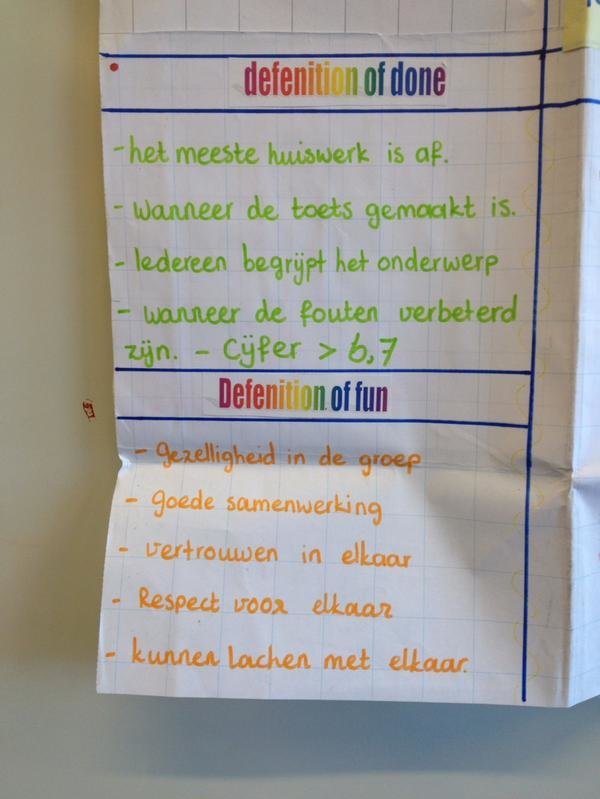 defenition of done
-het meeste huiswerk is af.
- wanneer de toets gemaakt is.
- Iedereen begrijpt het onderwerp
- wanneer de fouten verbeterd
zijn. - Cijfer > 6,7
Defenition of fun
- gezelligheid in de groep
- goede samenwerking
- vertrouwen in elkaar
- Respect voor elkaar
- kunnen lachen met elkaar.